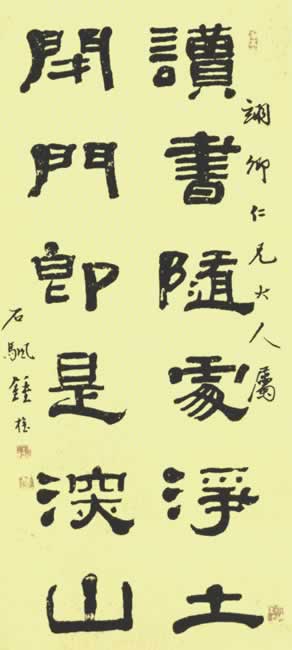 讀書隨處淨土
閉門即是深山
仁兄大人屬
石颿鍾